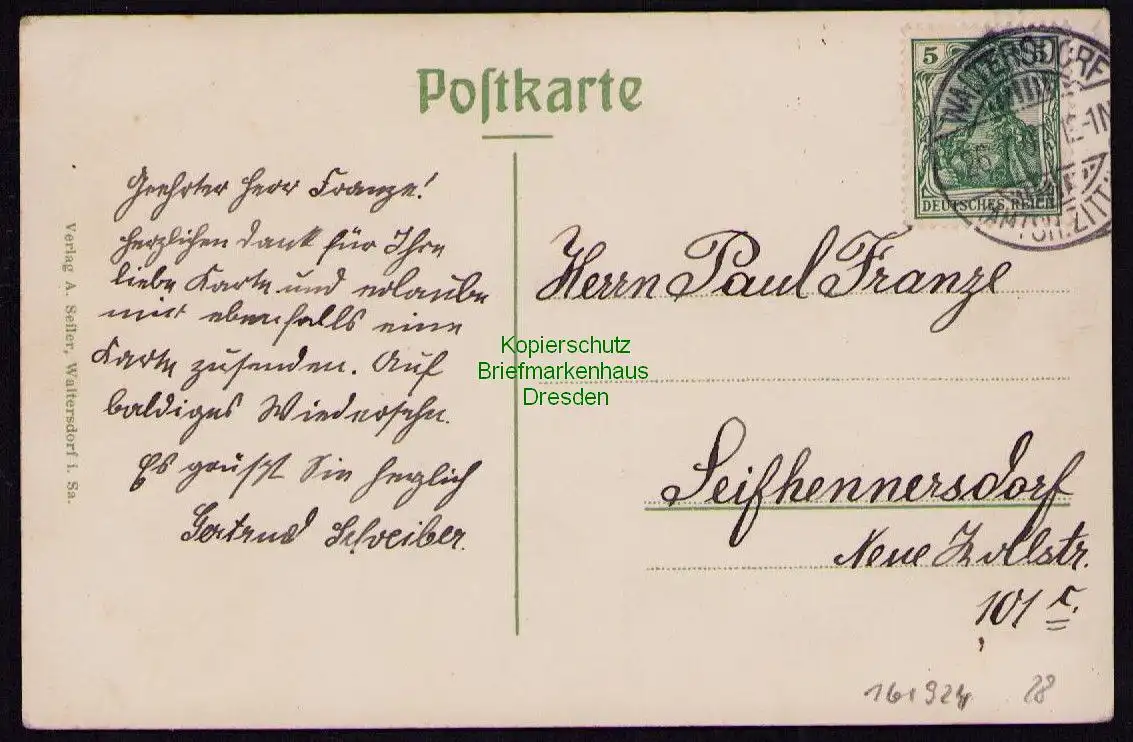 Postkarte
5
DEUTSCHES REICH
WALTERSDORF
AMTSH. ZITT
Geehrter Herr Franze!
Herzlichen Dank für Ihre
liebe Karte und erlaube
mir ebenfalls eine
Karte zusenden. Auf
baldiges Wiedersehn.
Es grüßt Sie herzlich
Gertrud Schreiber.
Verlag A. Seiler, Waltersdorf i. Sa.
Herrn Paul Franze
Kopierschutz
Briefmarkenhaus
Dresden
Seifhennersdorf
Neue Zollstr.
101 c.
161924 28